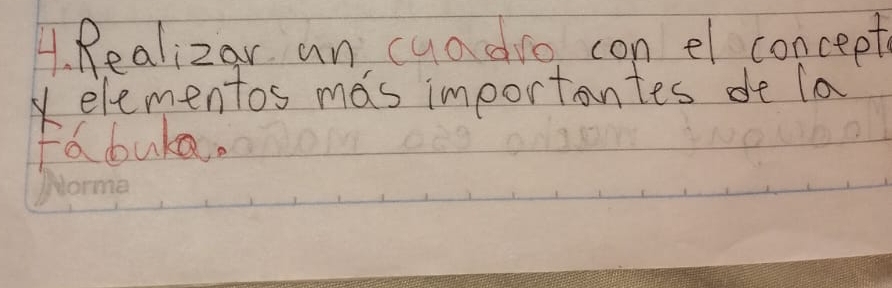 4. Realizar un cuadro con el concepto
y elementos más importantes de la
Fábula.
Norma